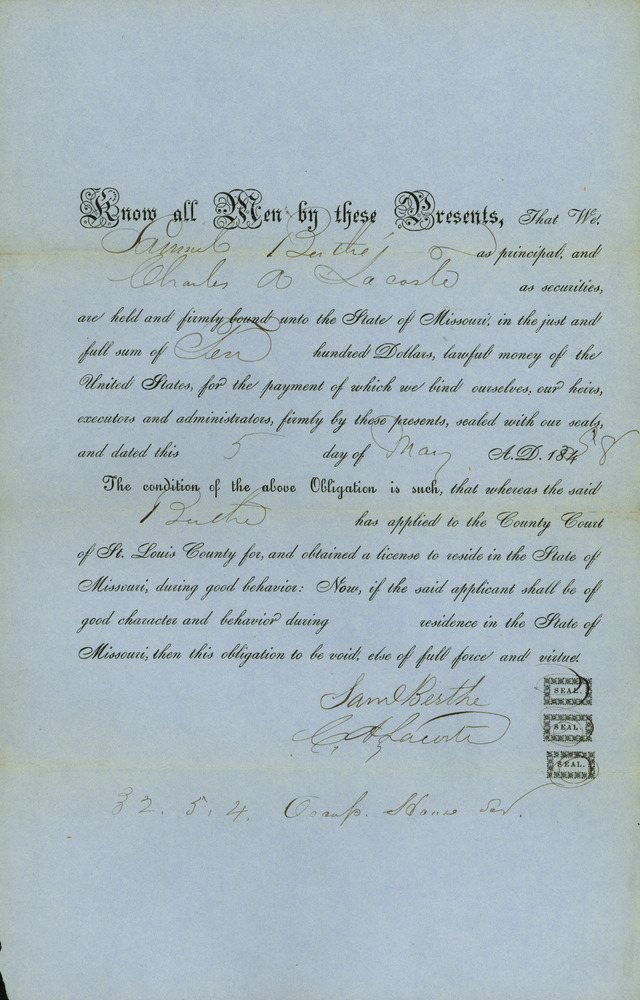 Know all Men by these Presents, That We,
Samuel Berthe as principal, and
Charles A Lacoste as securities,
are held and firmly bound unto the State of Missouri, in the just and
full sum of Ten hundred Dollars, lawful money of the
United States, for the payment of which we bind ourselves, our heirs,
executors and administrators, firmly by these presents, sealed with our seals,
and dated this 5 day of May A.D. 1858
The condition of the above Obligation is such, that whereas the said
Berthe has applied to the County Court
of St. Louis County for, and obtained a license to reside in the State of
Missouri, during good behavior: Now, if the said applicant shall be of
good character and behavior during residence in the State of
Missouri, then this obligation to be void, else of full force and virtue.
Saml Berthe SEAL.
C. A. Lacoste SEAL.
SEAL.
32. 5.4. Occup.